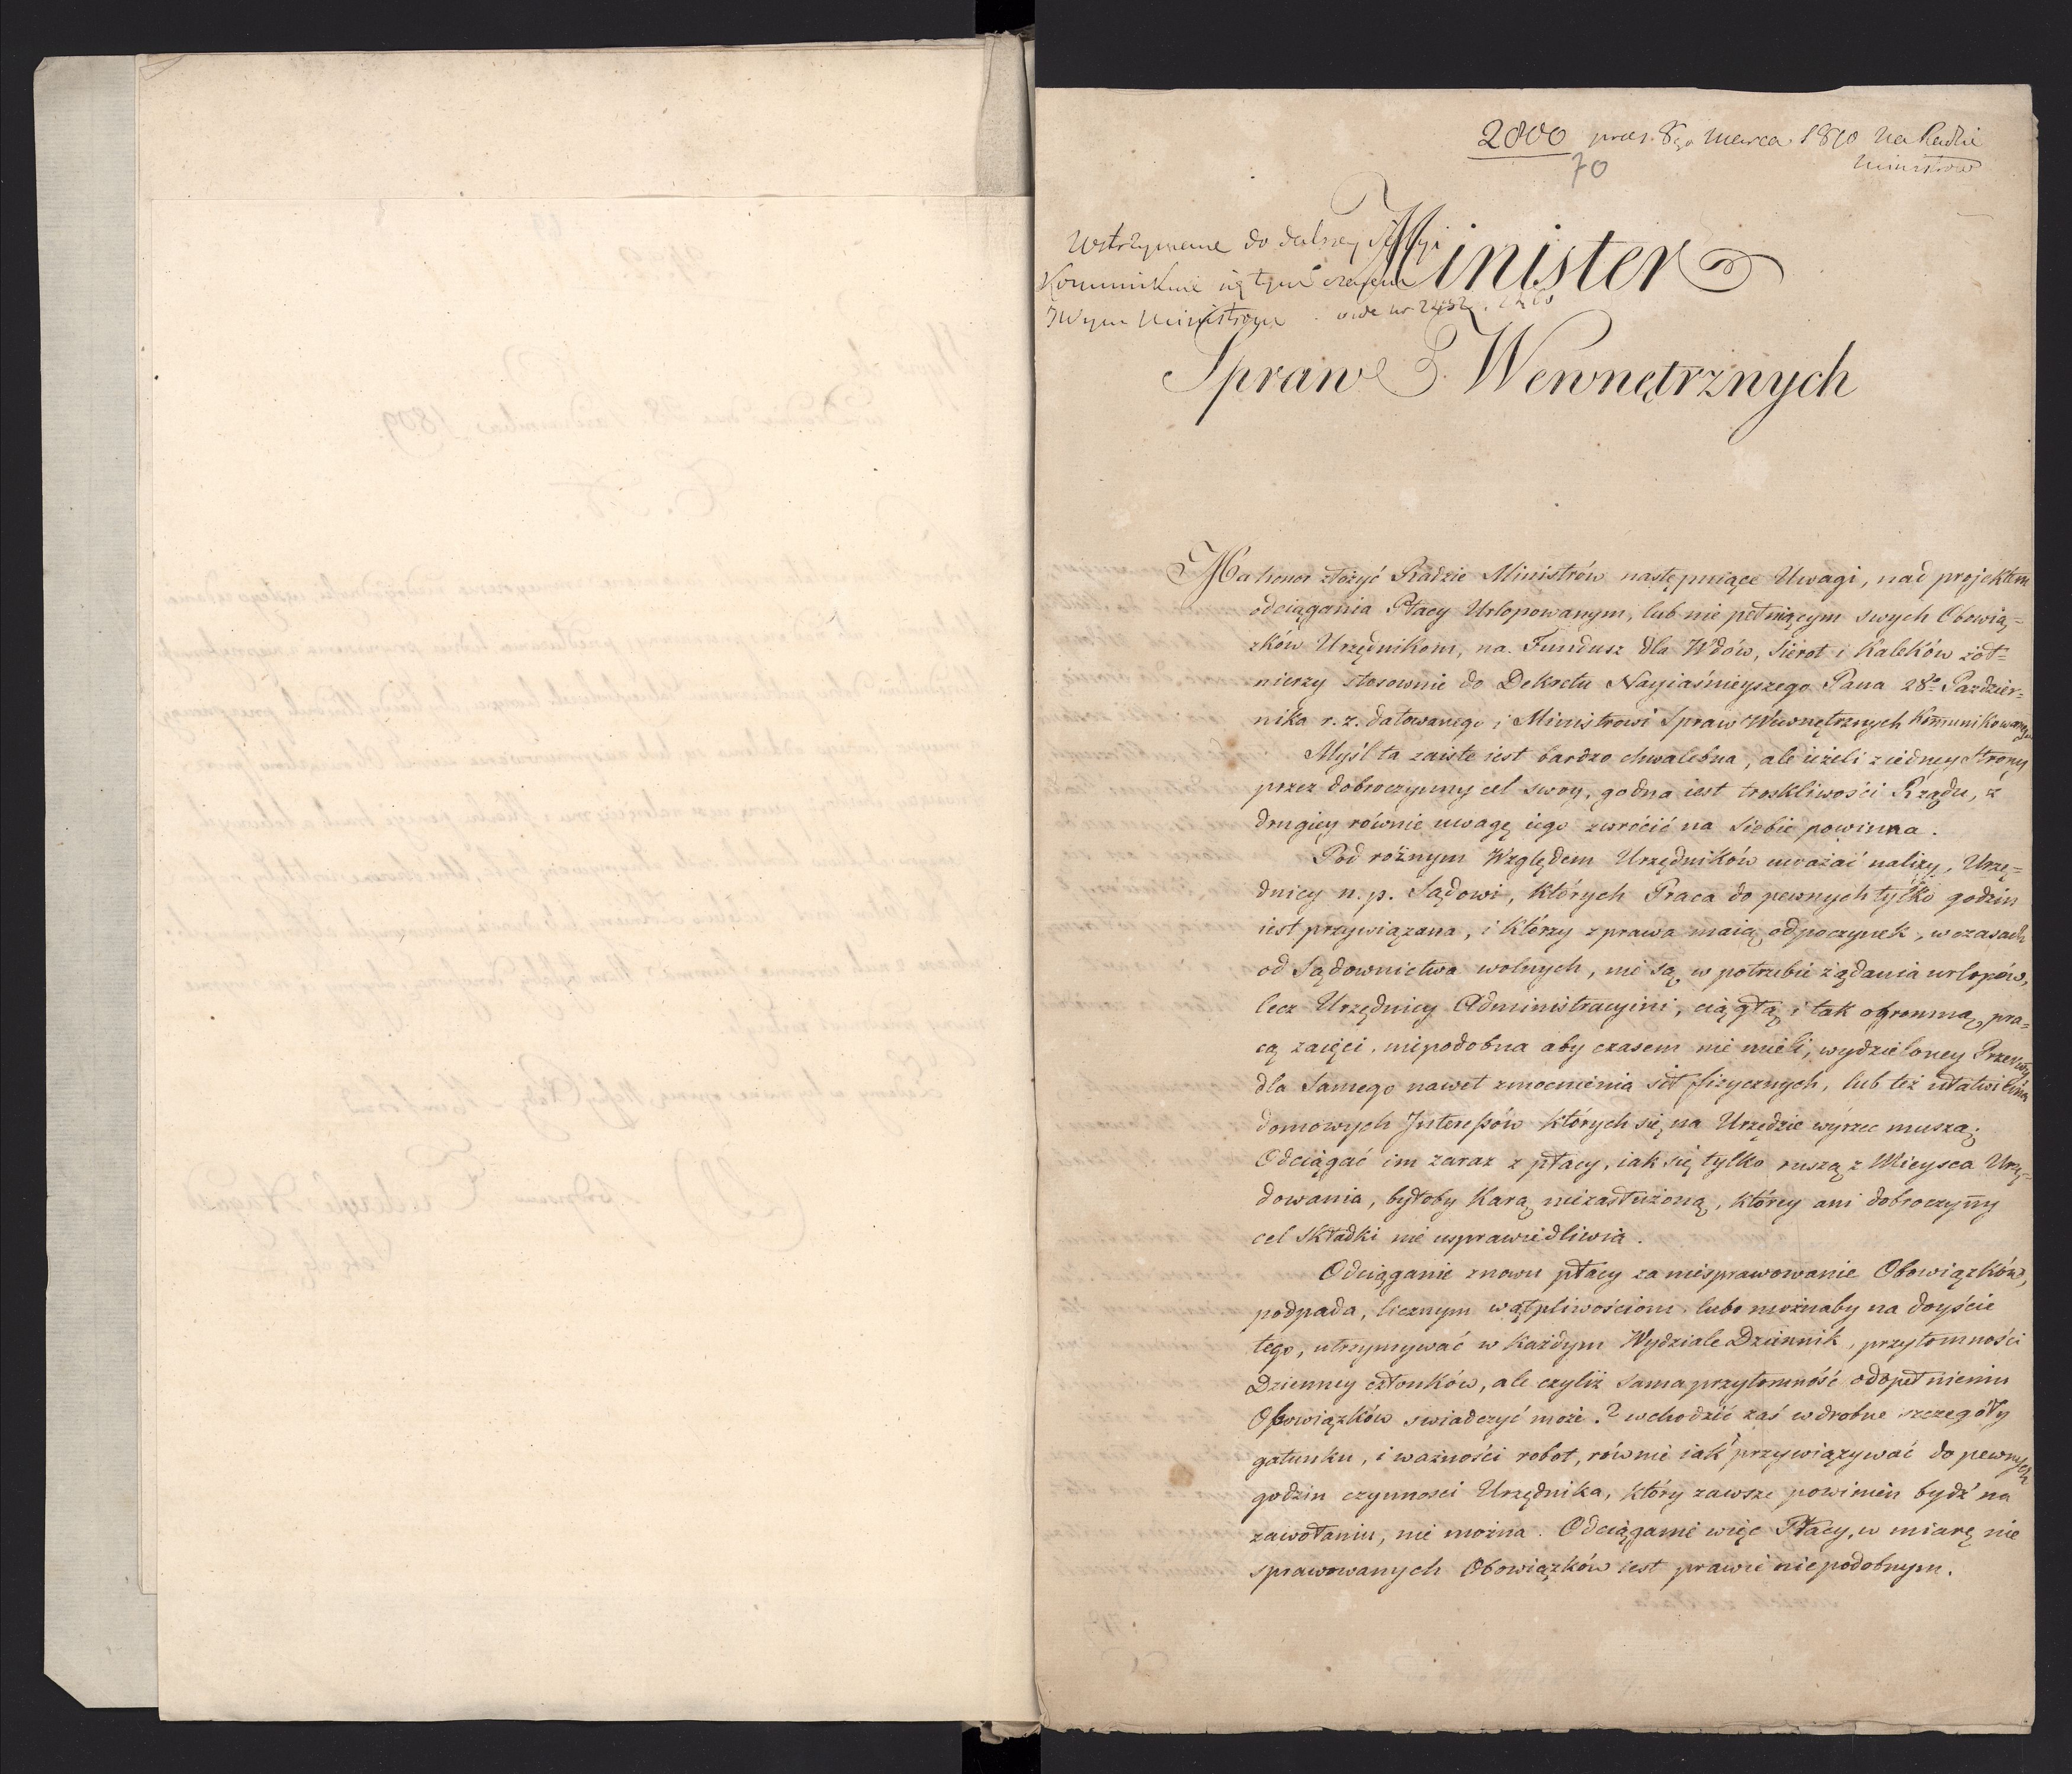 2800 prez. 8go Marca 1810 na Radzie
Ministrów
70
Wstrzymane do dalszey
Kommunikuie się tym czasem
JWym Ministrom
Minister
Spraw Wewnętrznych
Ma honor złożyć Radzie Ministrów następuiące Uwagi, nad projektem
odciągania Płacy Urlopowanym, lub nie pełniącym swych Obowią=
zków Urzędnikom, na Fundusz dla Wdów, Sierot i Kaleków żoł=
nierzy stosownie do Dekretu Nayiaśnieyszego Pana 28o Paździer=
nika r. z. datowanego i Ministrowi Spraw Wewnętrznych Kommunikowanego
Myśl ta zaiste iest bardzo chwalebna, ale ieżeli z iedney Strony
przez dobroczynny cel swoy, godna iest troskliwości Rządu, z
drugiey równie uwagę iego zwrócić na siebie powinna.
Pod rożnym Względem Urzędników uważać należy, Urzę=
dnicy n. p. Sądowi, których Praca do pewnych tylko godzin
iest przywiązana, i którzy z prawa maią odpoczynek, w czasach
od Sądownictwa wolnych, nie są w potrzebie żądania urlopów,
lecz Urzędnicy Administracyini, ciągłą i tak ogromną pra=
cą zaięci, niepodobna aby czasem nie mieli, wydzieloney Przerwy
dla Samego nawet zmocnienia sił fizycznych, lub też ułatwienia
domowych Interessów których się na Urzędzie wyrzec muszą.
Odciągać im zaraz z płacy, iak się tylko ruszą z Mieysca Urzę=
dowania, byłoby Karą niezasłużoną, którey ani dobroczynny
cel Składki nie usprawiedliwia.
Odciąganie znowu płacy za niesprawowanie Obowiązków,
podpada, licznym wątpliwościom, lubo możnaby na doyście
tego, utrzymywać w każdym Wydziale Dziennik, przytomności
Dzienney członków, ale czyliż sama przytomność o dopełnieniu
Obowiązków swiadczyć może? wchodzić zaś w drobne szczegóły
gatunku, i ważności robot, równie iak przywiązywać do pewnych
godzin czynnosci Urzędnika, który zawsze powinien bydź na
zawołaniu, nie można. Odciąganie więc Płacy, w miarę nie
sprawowanych Obowiązków iest prawie niepodobnym.